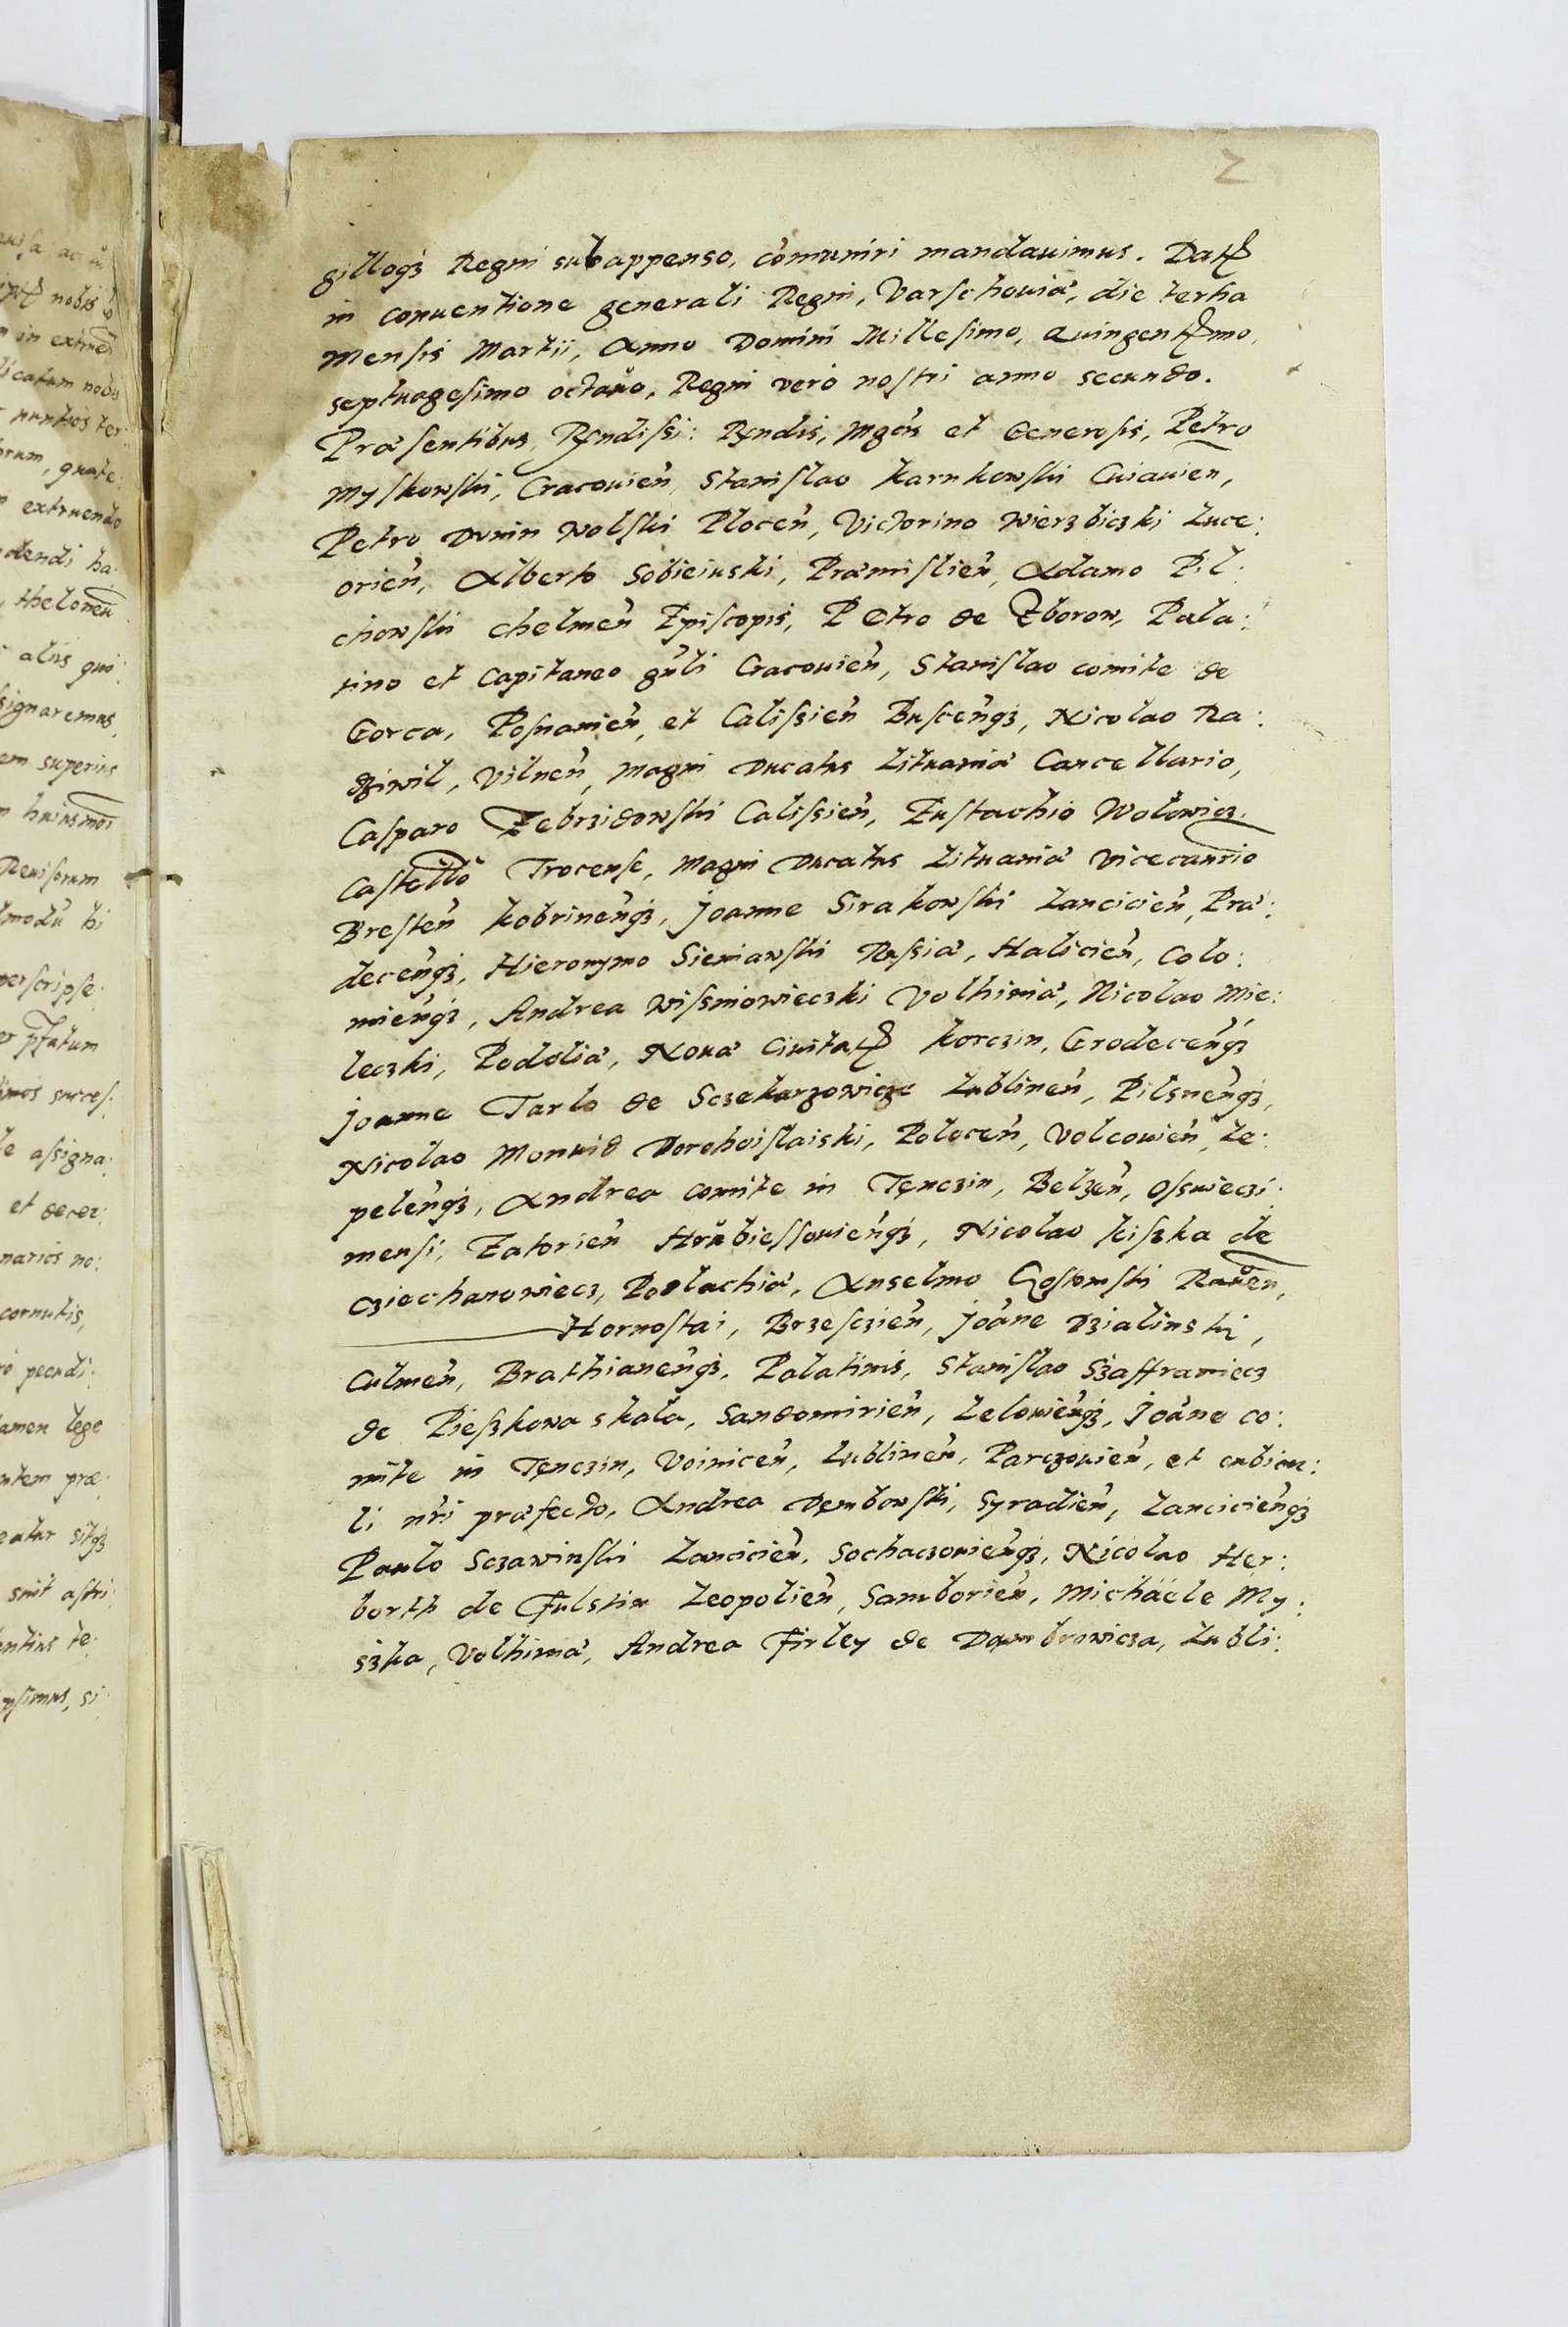 2
gilloq3 Regni subappenso, com̃uniri mandauimus. Datꝭ
in conuentione generali Regni, Varschouiæ, die tertia
Mensis Martii, Anno Domini Millesimo, Quingentꝭmo,
septuagesimo octauo, Regni verò nostri anno secundo.
Præsentibus, Rñdissi: Rñdis, Mgcis et Generosis, Petro
Myskowski, Cracouień, Stanislao Karnkowski Cuiauien,
Petro Dunin Wolski Płoceń, Victorino Wierzbiczki Luce:
orień, Alberto Sobieiuski, Præmislień, Adamo Pil:
chowski Chelmeń Episcopis, Petro de Zborow, Pala:
tino et Capitaneo gñli Cracouień, Stanislao comite de
Gorca, Posnanień, et Calissień Buscenq3, Nicolao Ra:
dziwil, Vilneń, Magni Ducatus Lituaniæ Cancellario,
Casparo Zebrzidowski Calissień, Eustachio Wolowicz.
Castellõ Trocense, Magni Ducatus Lituaniæ Vicecancrio
Bresteń Kobrinenq3, Joanne Sirakowski Lancicień, Præ:
decenq3, Hieronymo Sieniawski Russiæ, Halicień, Colo:
mienq3, Andrea Wissniowieczki Volhiniæ, Nicolao Mie:
leczki, Podoliæ, Nouæ Ciuitatꝭ Korczin, Grodecenq3
Joanne Tarlo de Sczekarzowicze Lublineń, Pilsnenq3,
Nicolao Monuid Dorohoislaiski, Poloceń, Volcouień, Le:
pelenq3, Andrea comite in Tęnczin, Belzeń, Osswieczi:
mensi, Zatorień Hrubiessouienq3, Nicolao Kiszka de
Cziechanowiecz, Podlachiæ, Anselmo Gostomski Raueń,
Hornostai, Brzesczień, Joãne Dzialinski,
Culmeń, Brathianenq3, Palatinis, Stanislao Szaffraniecz
de Pieszkowa skala, Sandomirień, Lelouienq3, Joãne co:
mite in Tęnczin, Voiniceń, Lublineń, Parczouień, et cubicu:
li nr̃i præfecto, Andrea Dembowski, Syradień, Lancicienq3
Paulo Sczawinski Lancicień, Sochaczouienq3, Nicolao Her:
borth de Fulstin Leopolień, Samborień, Michäele My:
szka, Volhiniæ, Andrea Firley de Dambrowicza, Lubli: